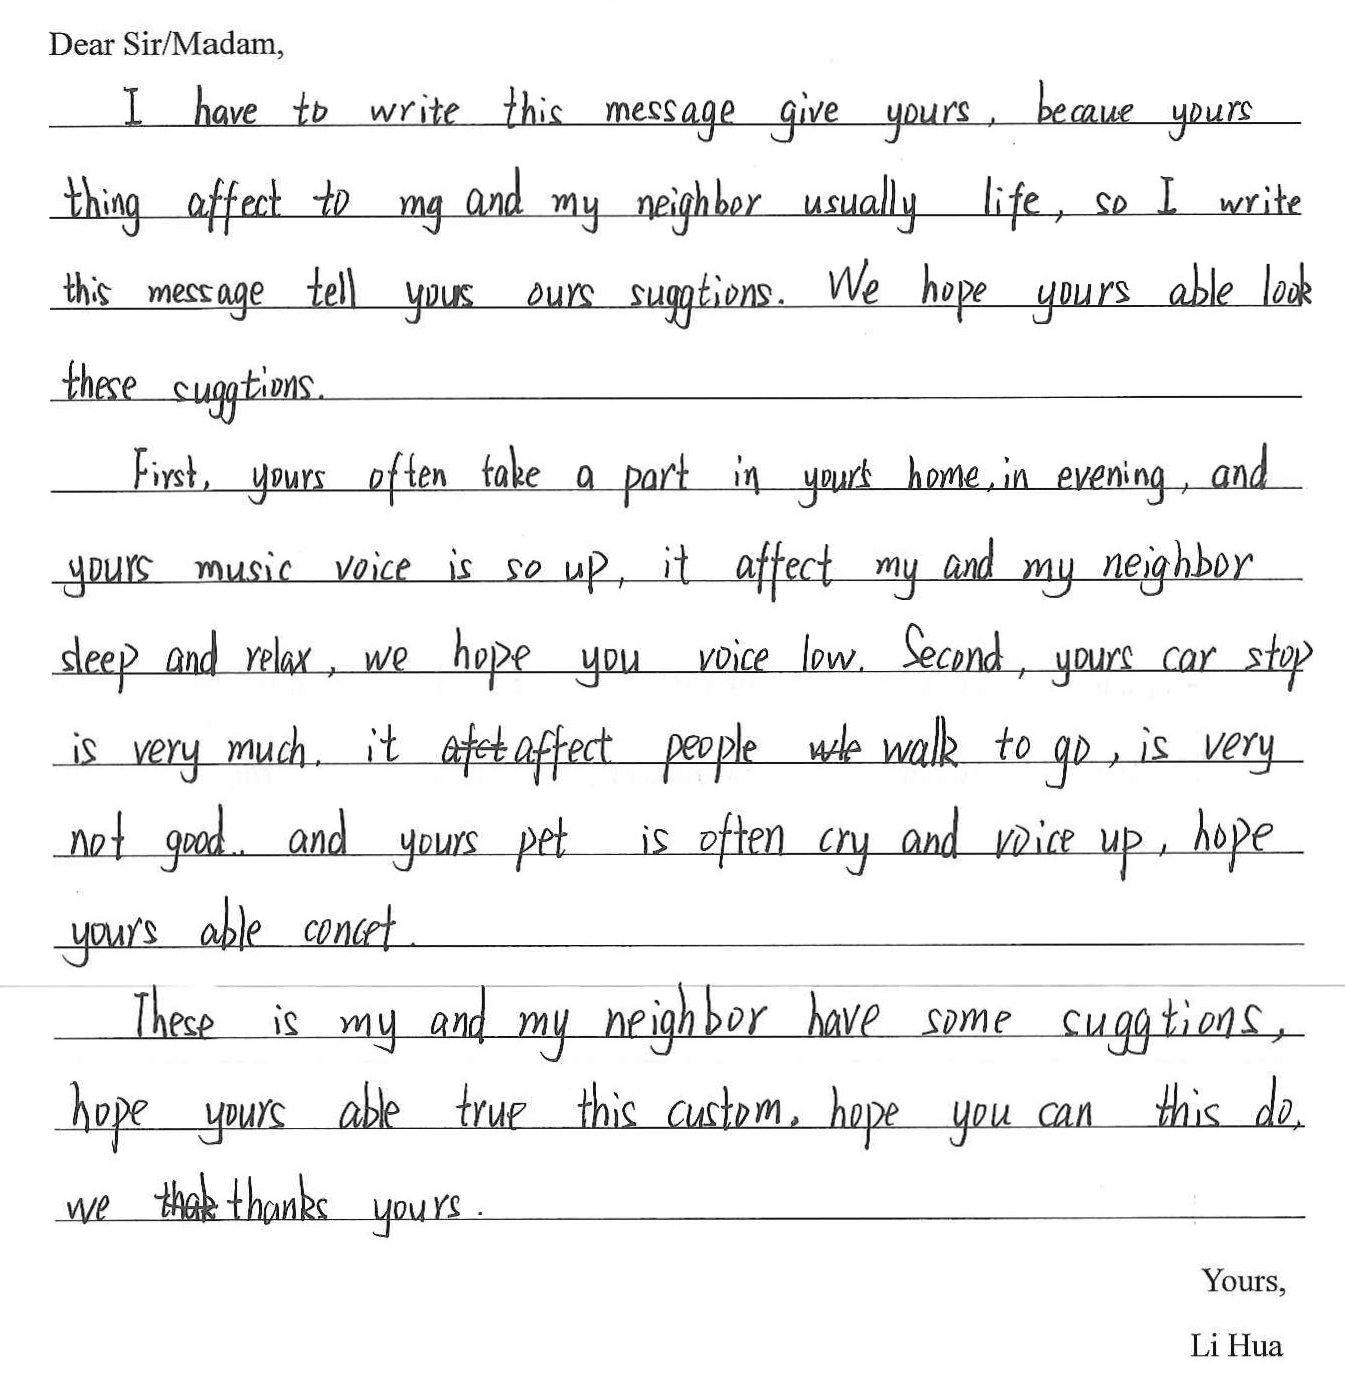 Dear Sir/Madam,
I have to write this message give yours, becaue yours
thing affect to mg and my neighbor usually life, so I write
this message tell yous ours suggtions. We hope yours able look
these suggtions.
First, yours often take a part in yours home, in evening, and
yours music voice is so up, it affect my and my neighbor
sleep and relax, we hope you voice low. Second, yours car stop
is very much, it afct affect people wle walk to go, is very
not good.. and yours pet is often cry and voice up, hope
yours able concet.
These is my and my neighbor have some suggtions,
hope yours able true this custom. hope you can this do,
we thak thanks yours.
Yours,
Li Hua